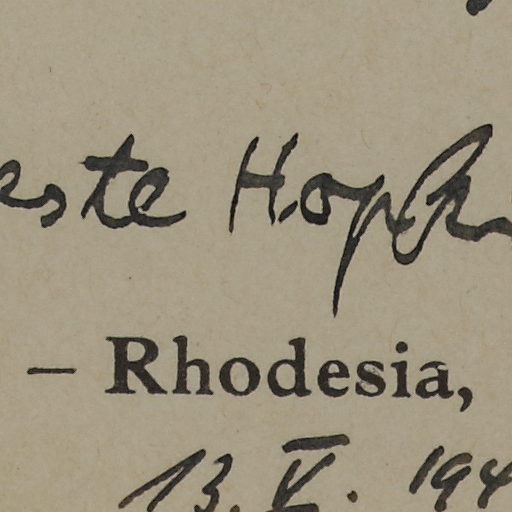 este Hopk
– Rhodesia,
13. V. 194